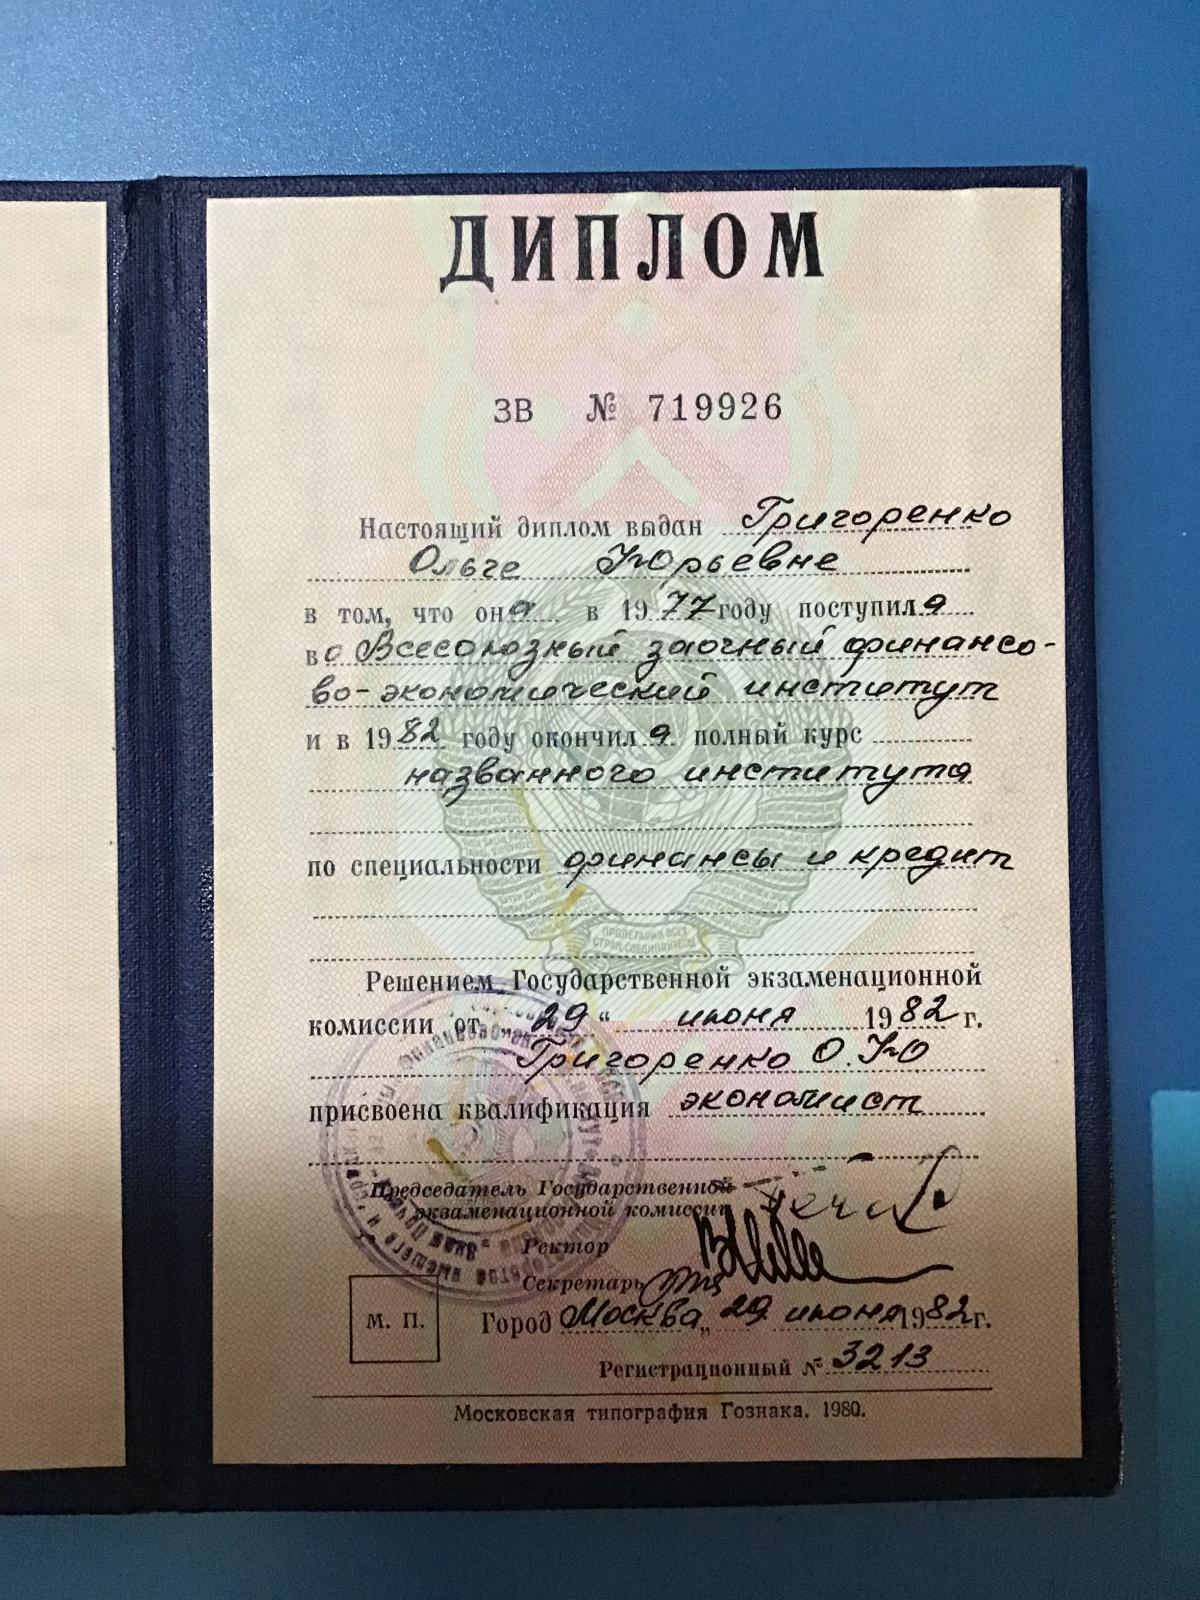 ДИПЛОМ
ЗВ № 719926
Настоящий диплом выдан Григоренко
Ольге Юрьевне
в том, что она в 1977 году поступила
во Всесоюзный заочный финансо-
во-экономический институт
и в 1982 году окончила полный курс
названного института
по специальности финансы и кредит
ПРОЛЕТАРИИ ВСЕХ
СТРАН, СОЕДИНЯЙТЕСЬ!
Решением Государственной экзаменационной
комиссии от „29“ июня 1982 г.
Григоренко О.Ю
присвоена квалификация экономист
Председатель Государственной
экзаменационной комиссии
Ректор
Секретарь
М. П.
Город Москва, „29 июня 1982 г.
Регистрационный № 3213
Московская типография Гознака. 1980.